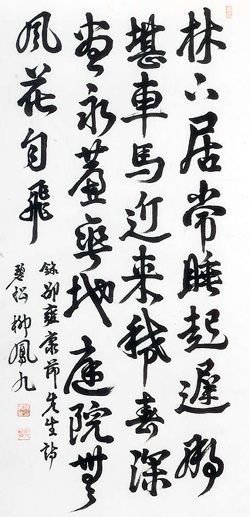 林下居常睡起遲那
堪車馬近來稀春深
晝永簾垂地庭院無
風花自飛
錄邵雍康節先生詩
柳鳳九